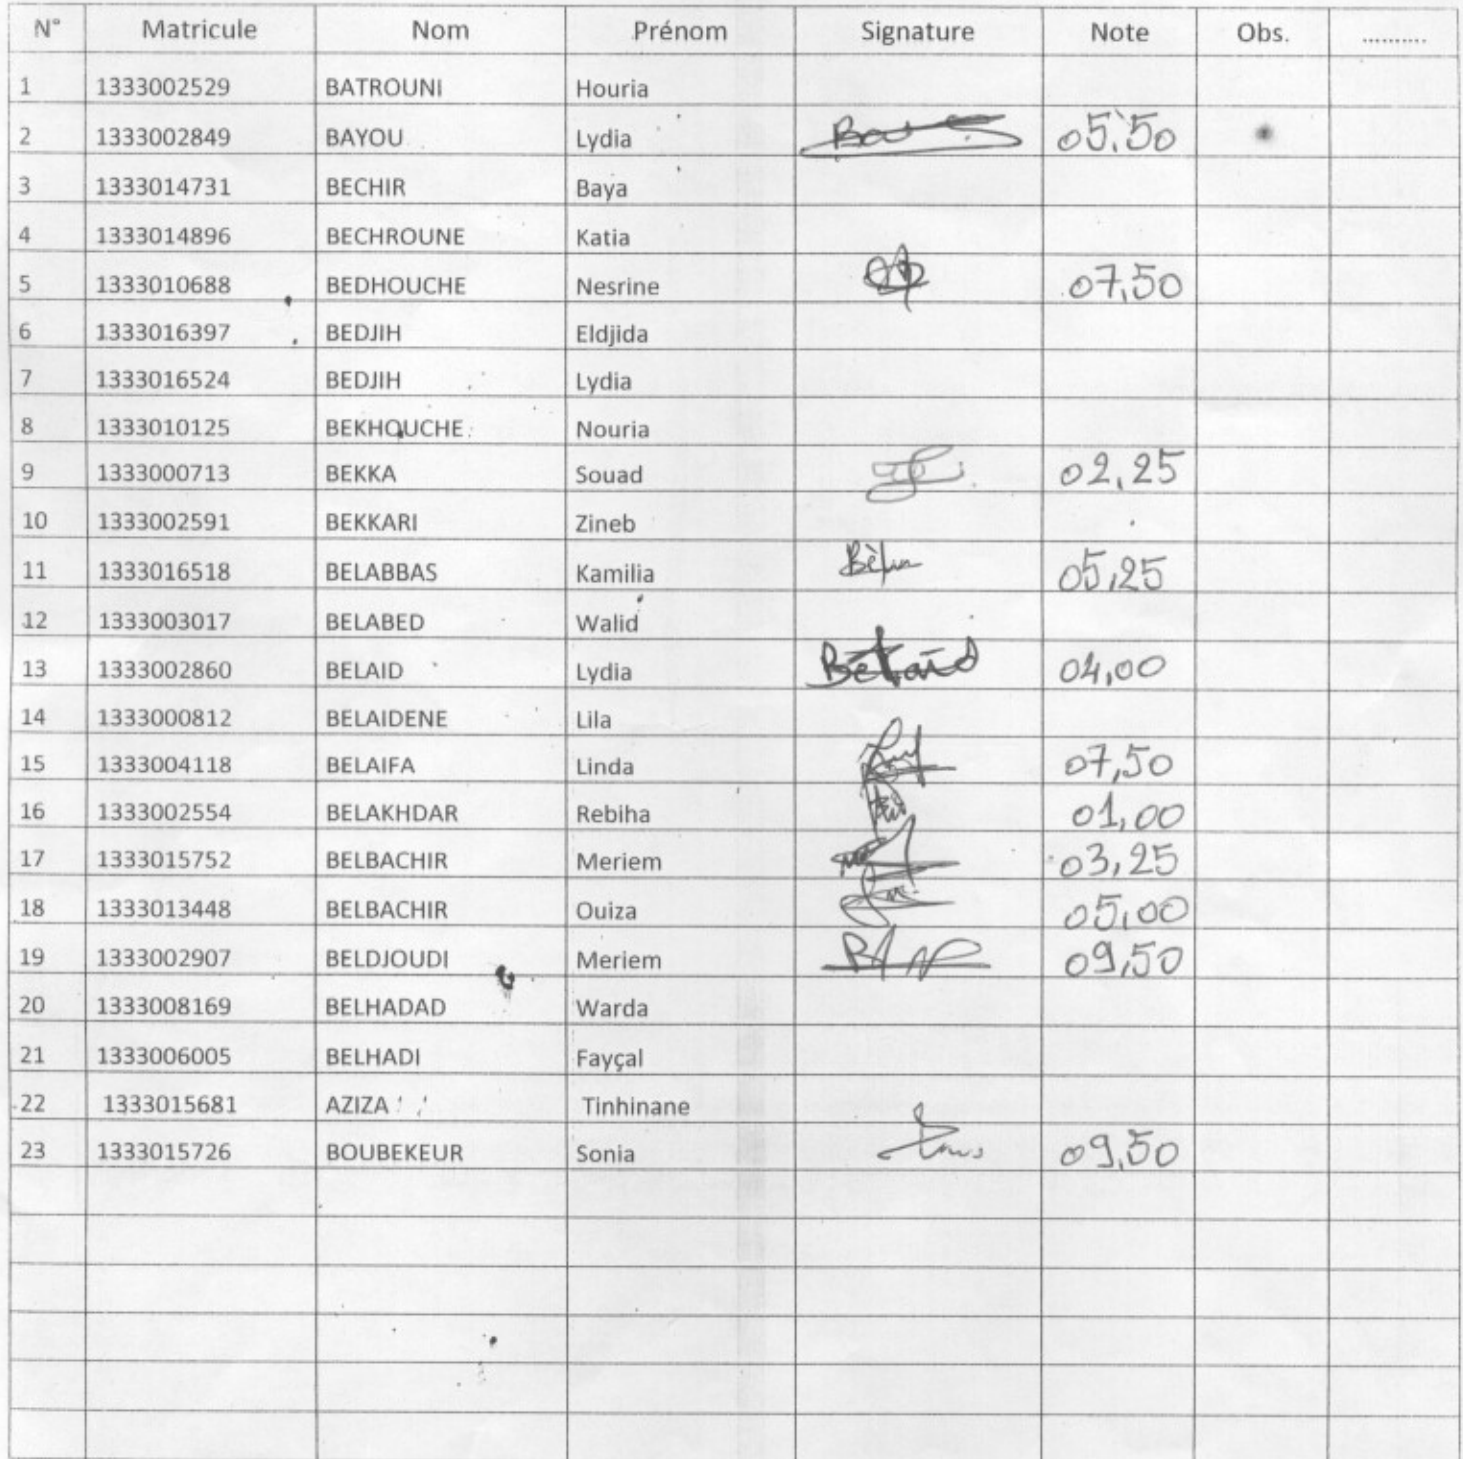 N° Matricule Nom Prénom Signature Note Obs. ..........
1 1333002529 BATROUNI Houria
2 1333002849 BAYOU Lydia 05,50
3 1333014731 BECHIR Baya
4 1333014896 BECHROUNE Katia
5 1333010688 BEDHOUCHE Nesrine 07,50
6 1333016397 BEDJIH Eldjida
7 1333016524 BEDJIH Lydia
8 1333010125 BEKHOUCHE Nouria
9 1333000713 BEKKA Souad 02,25
10 1333002591 BEKKARI Zineb
11 1333016518 BELABBAS Kamilia 05,25
12 1333003017 BELABED Walid
13 1333002860 BELAID Lydia Belaid 04,00
14 1333000812 BELAIDENE Lila
15 1333004118 BELAIFA Linda 07,50
16 1333002554 BELAKHDAR Rebiha 01,00
17 1333015752 BELBACHIR Meriem 03,25
18 1333013448 BELBACHIR Ouiza 05,00
19 1333002907 BELDJOUDI Meriem 09,50
20 1333008169 BELHADAD Warda
21 1333006005 BELHADI Fayçal
22 1333015681 AZIZA Tinhinane
23 1333015726 BOUBEKEUR Sonia 09,50